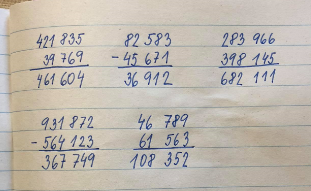 421 835 82 583 283 966
39 769 - 45 671 398 145
461 604 36 912 682 111
931 872 46 789
- 564 123 61 563
367 749 108 352